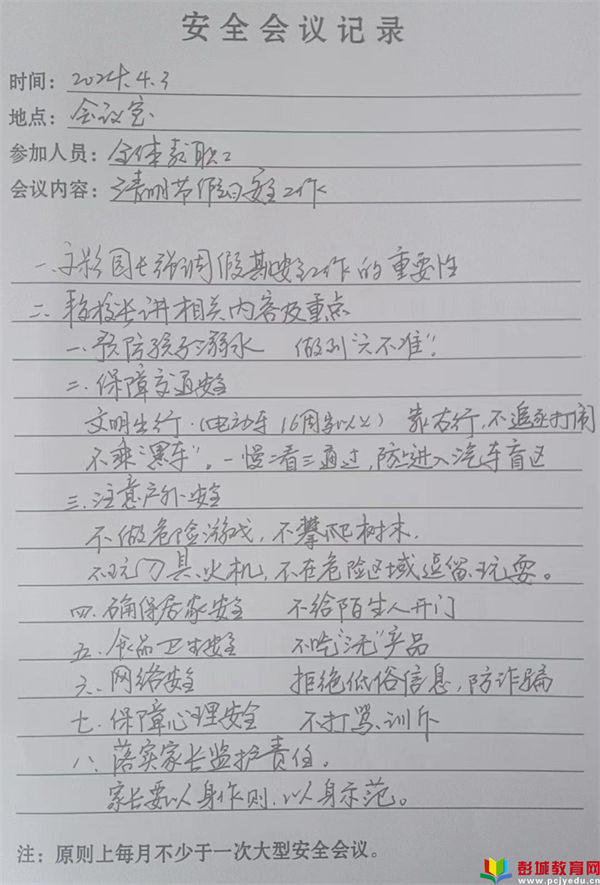 安全会议记录
时间：2024.4.3
地点：会议室
参加人员：全体教职工
会议内容：清明节假的安全工作
一、园长强调假期安全工作的重要性
二、校长讲相关内容及重点
一、预防孩子溺水 做到“六不准”。
二、保障交通安全
文明出行.（电动车16周岁以上）靠右行，不追逐打闹
不乘“黑车”。一慢二看三通过，防止进入汽车盲区
三、注意户外安全
不做危险游戏，不攀爬树木.
不玩刀具、火机，不在危险区域逗留玩耍。
四.确保居家安全 不给陌生人开门
五、食品卫生安全 不吃“三无”产品
六、网络安全 拒绝低俗信息，防诈骗
七、保障心理安全 不打骂、训斥
八、落实家长监护责任。
家长要以身作则，以身示范。
注：原则上每月不少于一次大型安全会议。
彭城教育网
www.pcjyedu.cn